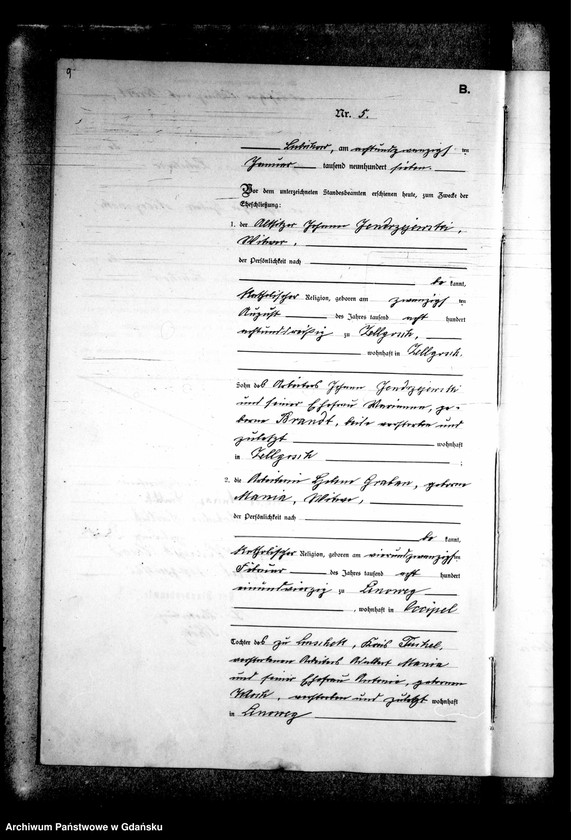 9
B.
Nr. 5.
Lubichow, am achtundzwanzigsten
Januar tausend neunhundert sieben.
Vor dem unterzeichneten Standesbeamten erschienen heute, zum Zwecke der
Eheschließung:
1. der Altsitzer Johann Jendrzejewski,
Witwer,
der Persönlichkeit nach
be kannt,
katholischer Religion, geboren am zwanzigsten
August des Jahres tausend acht hundert
achtunddreißig zu Zellgosch,
wohnhaft in Zellgosch.
Sohn des Arbeiters Johann Jendrzejewski
und seiner Ehefrau Marianna, ge-
borene Brandt, beide verstorben und
zuletzt wohnhaft
in Zellgosch ;
2. die Arbeiterin Helene Graban, geborene
Mania, Witwe,
der Persönlichkeit nach
be kannt,
katholischer Religion, geboren am vierundzwanzigsten
Februar des Jahres tausend acht hundert
einundvierzig zu
, wohnhaft in Occipel
Tochter des zu, Kreis Tuchel,
verstorbenen Arbeiters Adalbert Mania
und seiner Ehefrau Antonie, geborenen
verstorben und zuletzt wohnhaft
in
Archiwum Państwowe w Gdańsku